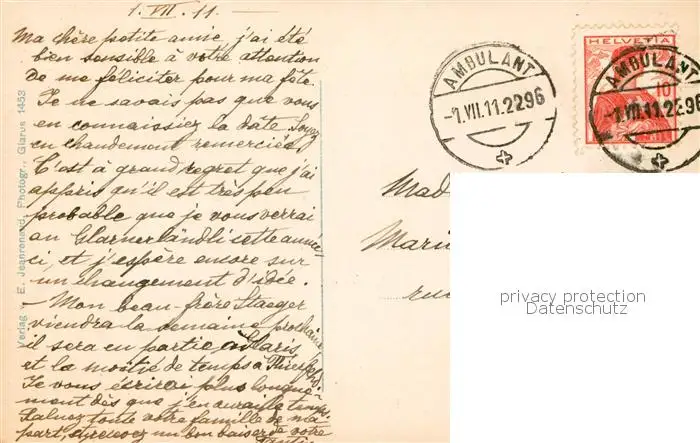 1. VII. 11
Ma chère petite amie, j'ai été
bien sensible à votre attention
de me féliciter pour ma fête.
Je ne savais pas que vous
en connaissiez la date. Soyez
en chaudement remerciée.
C'est à grand regret que j'ai
appris qu'il est très peu
probable que je vous verrai
au Glarnerländli cette année-
ci, et j'espère encore sur
un changement d'idée.
— Mon beau-frère Staeger
viendra la semaine prochaine,
il sera en partie à Glaris
et la moitié de temps à
Je vous écrirai plus longue-
ment dès que j'en aurai le temps
Saluez toute votre famille de ma
part, et recevez un bon baiser de votre
Verlag E. Jeanrenaud, Photogr., Glarus 1453
AMBULANT
-1.VII.11.2296
HELVETIA
10
AMBULANT
-1.VII.11.2296
Mad
Mari
ru
privacy protection
Datenschutz